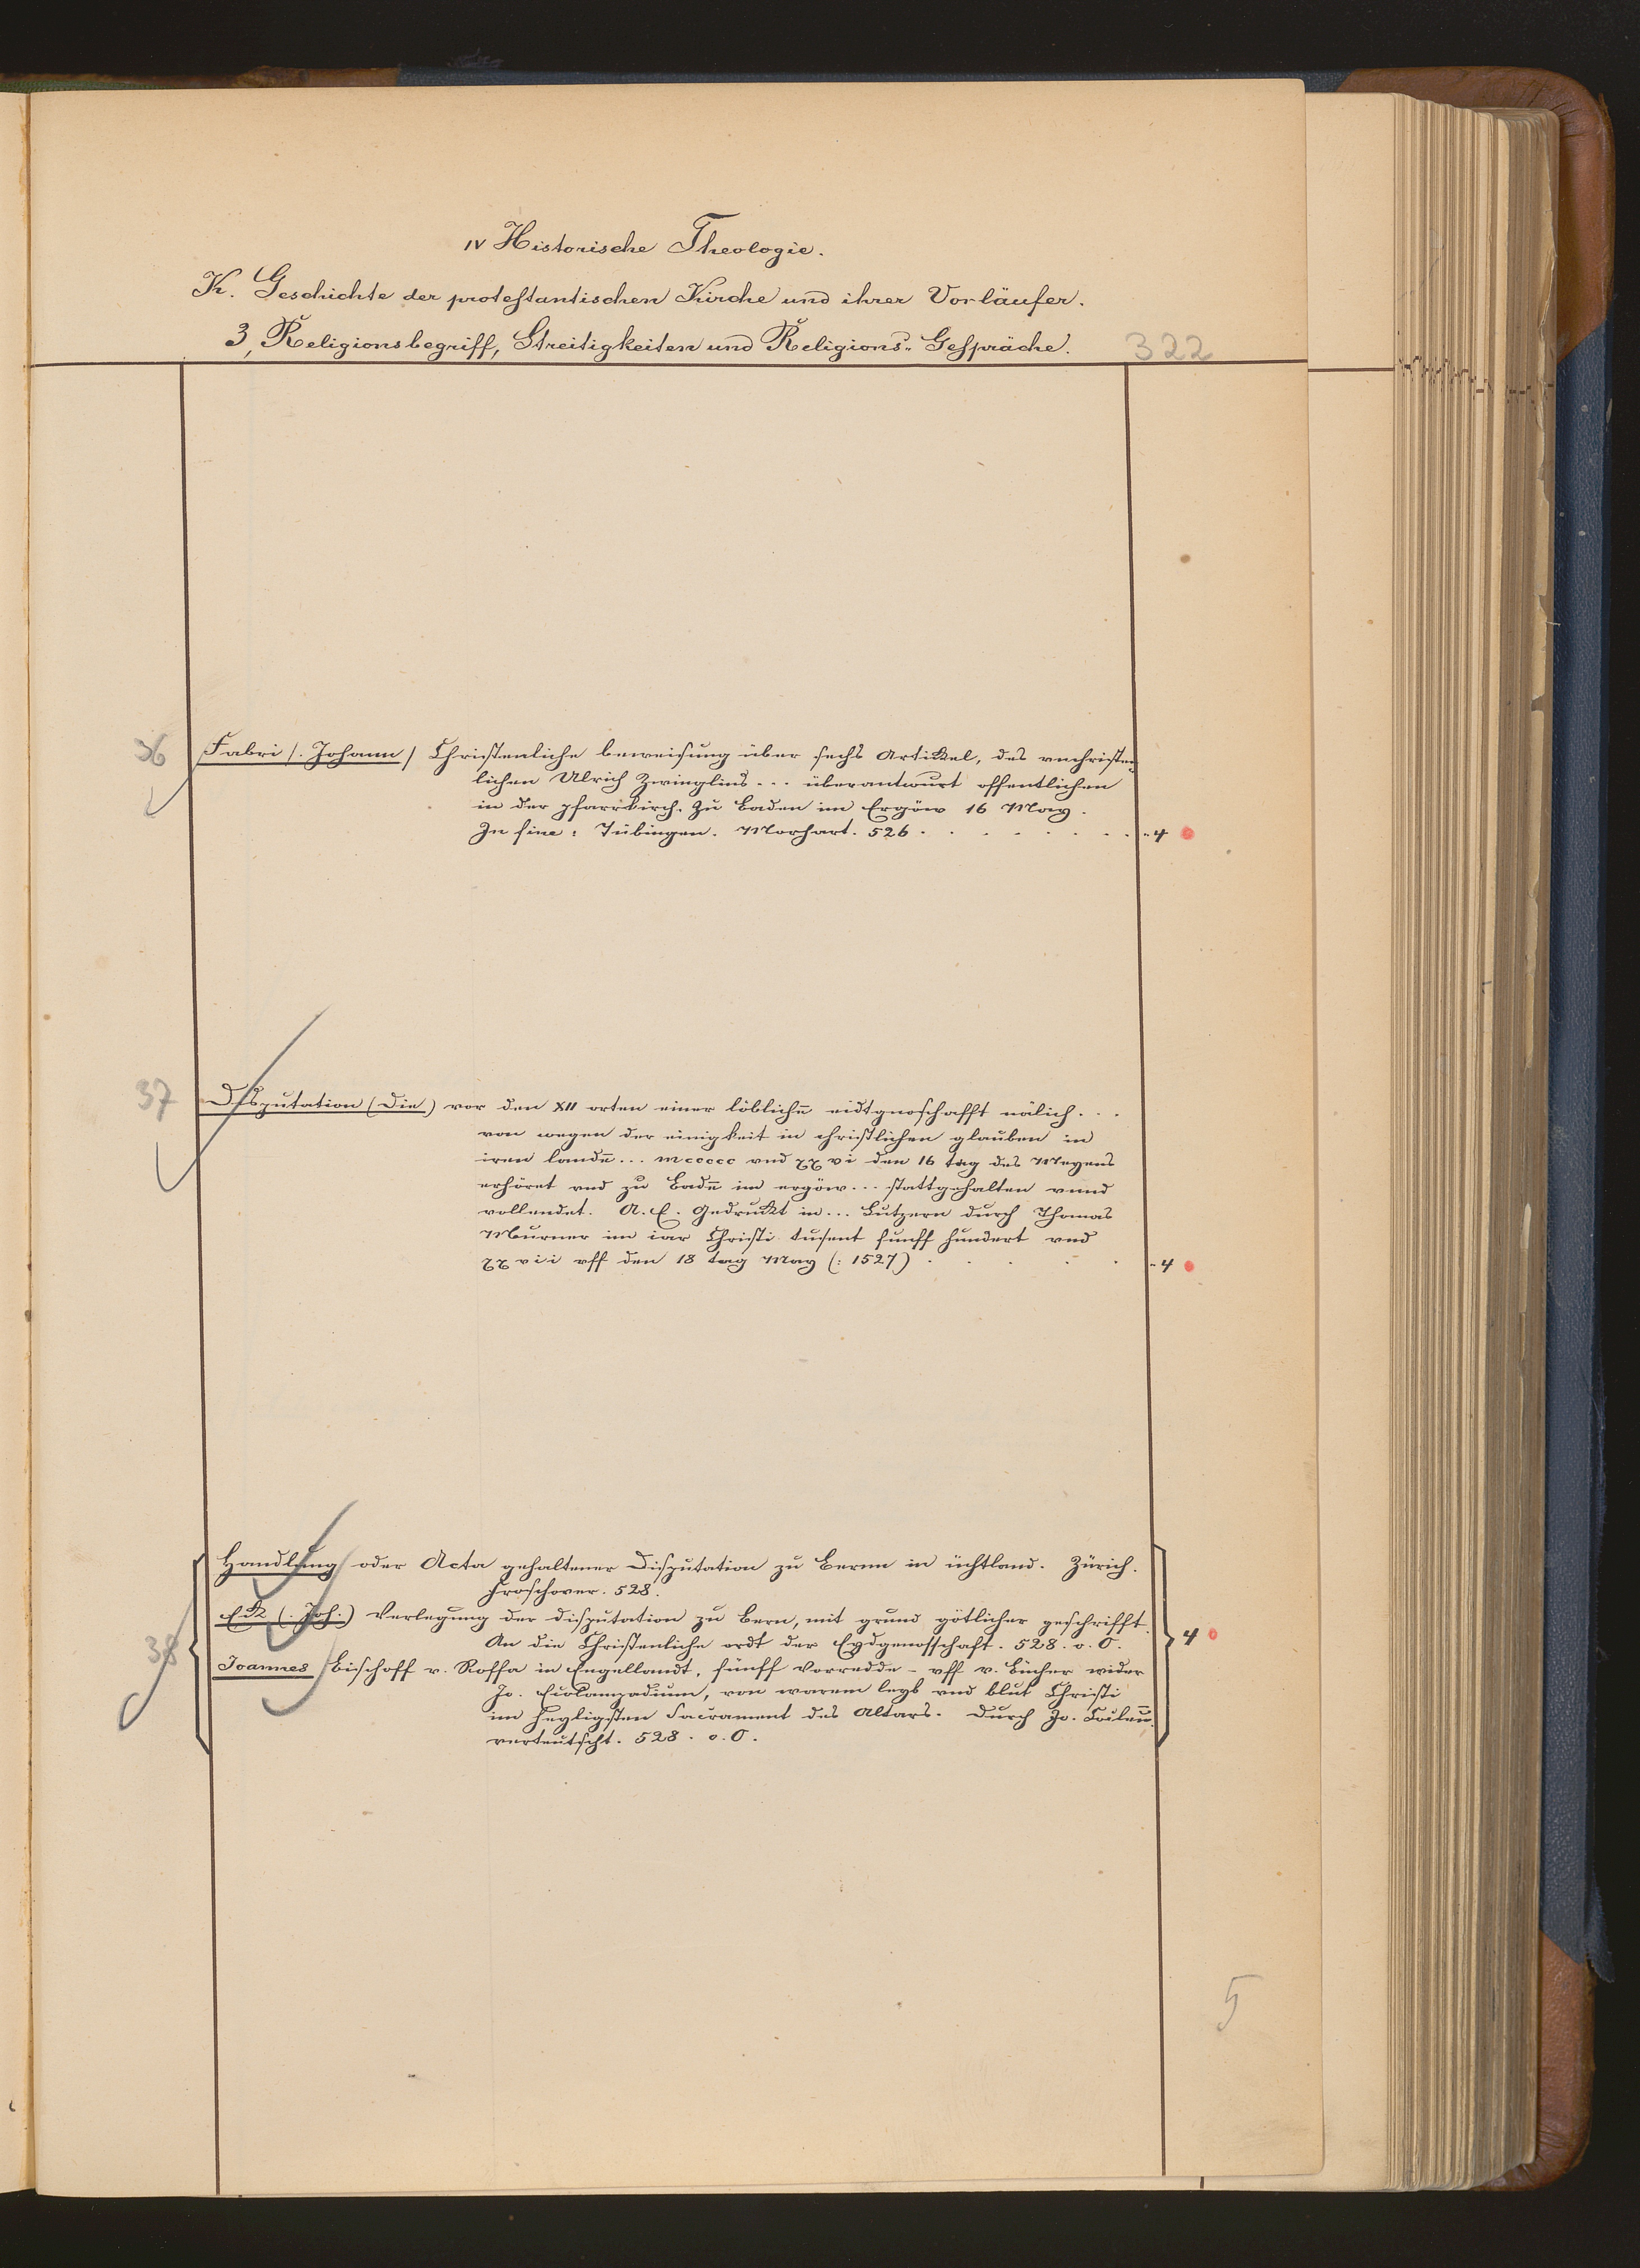 IV Historische Theologie.
K. Geschichte der protestantischen Kirche und ihrer Vorläufer.
3, Religionsbegriff, Streitigkeiten und Religions-Gespräche. 322
36 Fabri (: Johann) Christenliche beweisung über sechs Artikel, des vnchristen-
lichen Ulrich Zwinglins ... überantwurt offentlichen
in der pfarrkirch. zu Baden im Ergöw 16 May.
In fine: Tübingen. Morhart. 526 . . . . . . . 4
37 Disputation (Die) vor den XII orten einer löblichē eidtgnoschafft nälich ...
von wegen der einigkeit in christlichen glauben in
iren landē ... mccccc vnd xxvi den 16 tag des Meyens
erhöret vnd zu Badē im ergöw ... stattgehalten vnnd
vollendet. A. E. Gedruckt in ... Lutzern durch Thomas
Murner im iar Christi tusent funff hundert vnd
xxvii vff den 18 tag May (: 1527) . . . . . 4
Handlung oder Acta gehaltener Disputation zu Bernn in üchtland. Zürich.
Froschover. 528.
Eck (: Joh.) Verlegung der disputation zu Bern, mit grund götlicher geschrifft.
38 An die Christenliche ordt der Eydgenosschaft. 528. o. O. 4
Joannes Bischoff v. Roffa in Engellandt, fünff Vorredde - vff v. Bücher wider
Jo. Ecolampadium, von warem leyb vnd blut Christi
im heyligsten Sacrament des Altars. Durch Jo. Cocleū
verteutscht. 528. o. O.
5